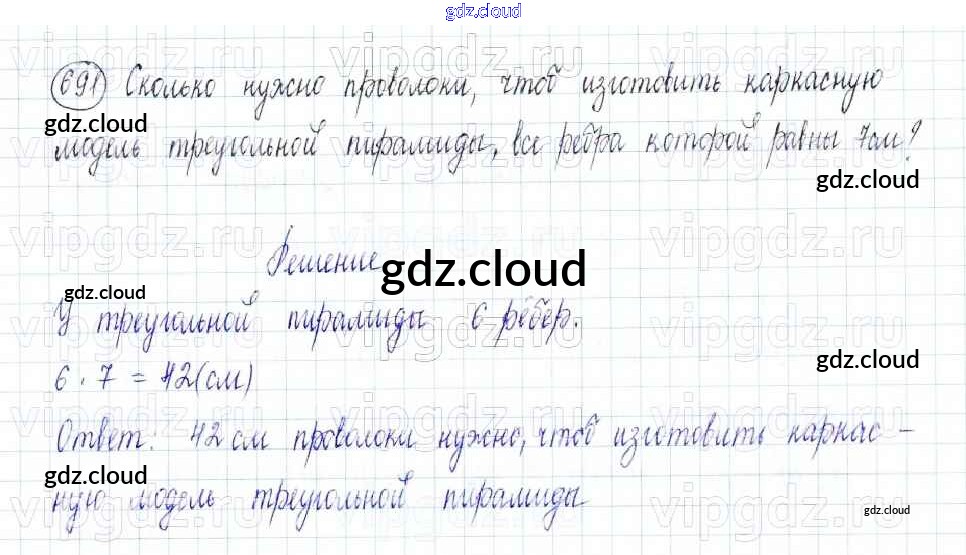 gdz.cloud
691 Сколько нужно проволоки, чтоб изготовить каркасную
gdz.cloud
модель треугольной пирамиды, все ребра которой равны 7см?
gdz.cloud
vipgdz.ru vipgdz.ru vipgdz.ru
Решение
gdz.cloud
gdz.cloud
У треугольной пирамиды 6 рёбер.
gdz.cloud
6 · 7 = 42(см)
Ответ: 42 см проволоки нужно, чтоб изготовить каркас –
gdz.cloud
ную модель треугольной пирамиды
gdz.cloud